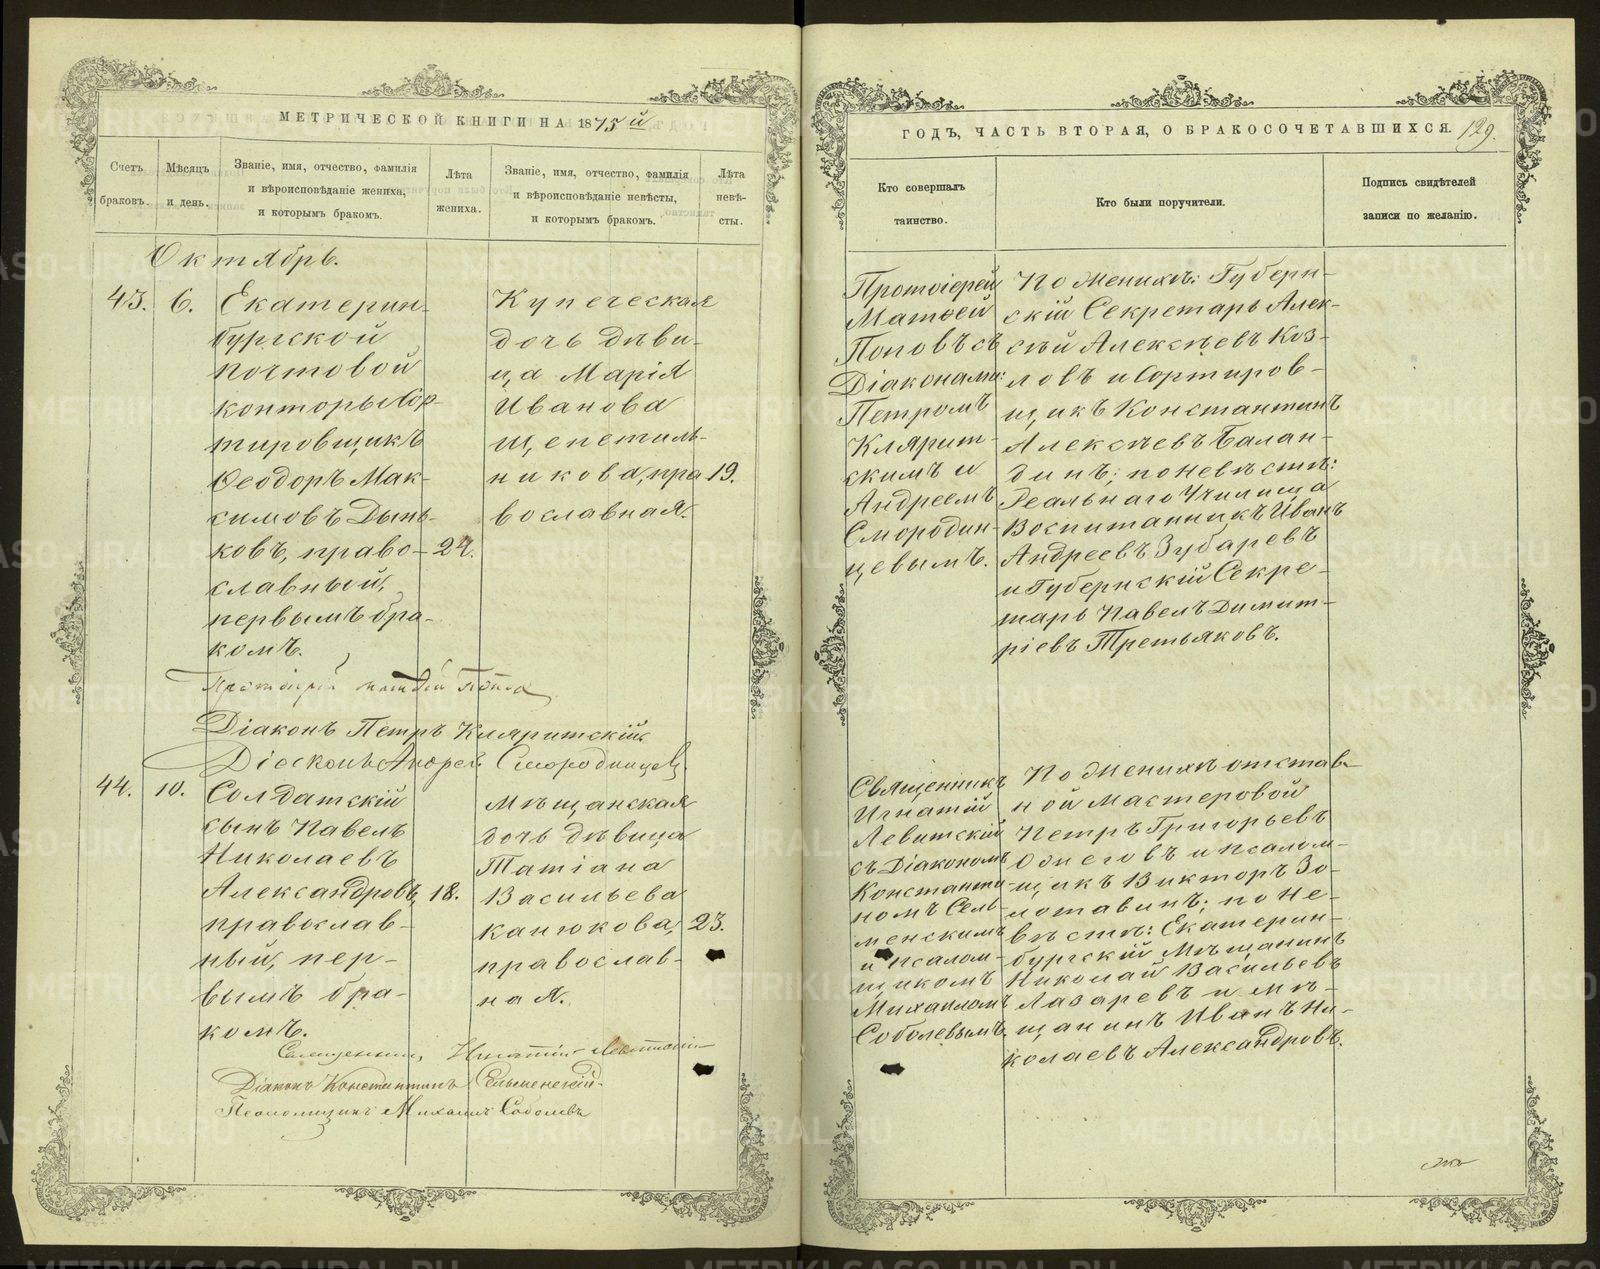 МЕТРИЧЕСКОЙ КНИГИ НА 1875й
Счетъ
браковъ.
Мѣсяцъ
и день.
Званіе, имя, отчество, фамилія
и вѣроисповѣданіе жениха,
и которымъ бракомъ.
Лѣта
жениха.
Званіе, имя, отчество, фамилія
и вѣроисповѣданіе невѣсты,
и которымъ бракомъ.
Лѣта
невѣ-
сты.
Октябрь.
43.
6.
Екатерин-
бургской
почтовой
конторы Сор-
тировщикъ
Ѳеодоръ Мак-
симовъ Дынь-
ковъ, право-
славный,
первымъ бра-
комъ.
24.
Купеческая
дочь дѣви-
ца Марія
Иванова
Щепетиль-
никова, пра
вославная.
19.
Протоіерей Матѳей Поповъ
Діаконъ Петръ Кляритскій
Діаконъ Андрей Смородинцевъ
44.
10.
Солдатскій
сынъ Павелъ
Николаевъ
Александровъ,
православ-
ный, пер-
вымъ бра-
комъ.
18.
Мѣщанская
дочь дѣвица
Татіана
Васильева
Канюкова,
православ-
ная.
23.
Священникъ Игнатій Левитскій
Діаконъ Константинъ Сельменскій
Псаломщикъ Михаилъ Соболевъ
ГОДЪ, ЧАСТЬ ВТОРАЯ, О БРАКОСОЧЕТАВШИХСЯ. 129.
Кто совершалъ
таинство.
Кто были поручители.
Подпись свидѣтелей
записи по желанію.
Протоіерей
Матѳей
Поповъ съ
Діаконами:
Петромъ
Клярит-
скимъ и
Андреемъ
Смородин-
цевымъ.
По женихѣ: Губерн-
скій Секретарь Алек-
сѣй Алексѣевъ Коз-
ловъ и Сортиров-
щикъ Константинъ
Алексѣевъ Балан-
динъ; по невѣстѣ:
Реальнаго Училища
Воспитанникъ Иванъ
Андреевъ Зубаревъ
и Губернскій Секре-
тарь Павелъ Димит-
ріевъ Третьяковъ.
Священникъ
Игнатій
Левитскій
съ Діакономъ
Константи-
номъ Сель-
менскимъ
и псалом-
щикомъ
Михаиломъ
Соболевымъ.
По женихѣ отстав-
ной мастеровой
Петръ Григорьевъ
Ожеговъ и псалом-
щикъ Викторъ Зо-
лотавинъ; по не-
вѣстѣ: Екатерин-
бургскій Мѣщанинъ
Николай Васильевъ
Лазаревъ и мѣ-
щанинъ Иванъ Ни-
колаевъ Александровъ.
METRIKI.GASO-URAL.RU